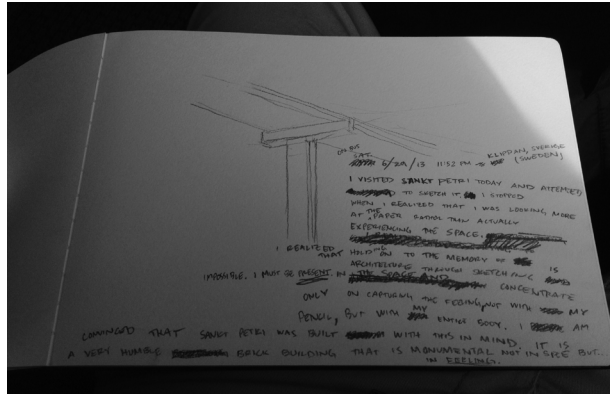 ON BUS
SAT. 6/29/13 11:52 PM → KLIPPAN, SVERIGE
(SWEDEN)
I VISITED SANKT PETRI TODAY AND ATTEMPTED
TO SKETCH IT. I STOPPED
WHEN I REALIZED THAT I WAS LOOKING MORE
AT THE PAPER RATHER THAN ACTUALLY
EXPERIENCING THE SPACE.
I REALIZED
THAT HOLDING ON TO THE MEMORY OF IS
ARCHITECTURE THROUGH SKETCHING
IMPOSSIBLE. I MUST BE PRESENT IN THE SPACE AND CONCENTRATE
ONLY ON CAPTURING THE FEELING, NOT WITH MY
PENCIL, BUT WITH MY ENTIRE BODY. I AM
CONVINCED THAT SANKT PETRI WAS BUILT WITH THIS IN MIND. IT IS
A VERY HUMBLE BRICK BUILDING THAT IS MONUMENTAL NOT IN SIZE BUT...
IN FEELING.